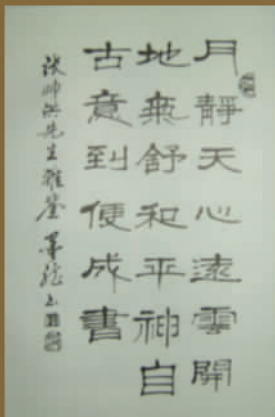 月靜天心遠雲開
地炁舒和平神自
古意到便成書
先生雅鑒